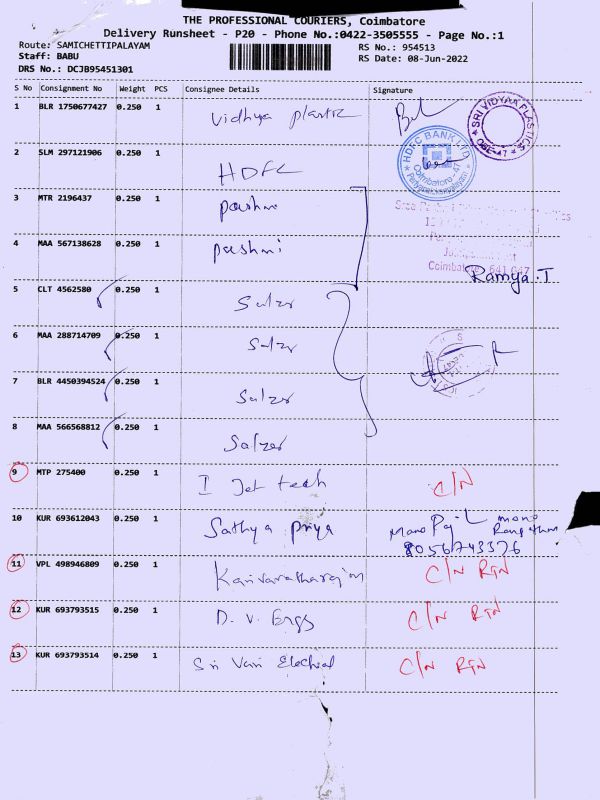 THE PROFESSIONAL COURIERS, Coimbatore
Delivery Runsheet - P20 - Phone No.:0422-3505555 - Page No.:1
Route: SAMICHETTIPALAYAM
RS No.: 954513
Staff: BABU
RS Date: 08-Jun-2022
DRS No.: DCJB95451301
S No Consignment No Weight PCS Consignee Details Signature
1 BLR 1750677427 0.250 1 Vidhya plastic
SRI VIDYAA PLASTIC
CBE-47
2 SLM 297121906 0.250 1 HDFC
HDFC BANK LTD
Coimbatore-47
3 MTR 2196437 0.250 1
4 MAA 567138628 0.250 1
Coimbatore 641 047
Ramya.T
5 CLT 4562580 0.250 1 Salzer
6 MAA 288714709 0.250 1 Salzer
7 BLR 4450394524 0.250 1 Salzer
8 MAA 566568812 0.250 1 Salzer
9 MTP 275400 0.250 1 I Jet tech C/N
10 KUR 693612043 0.250 1 Sathya priya
8056743376
11 VPL 498946809 0.250 1 C/N RTN
12 KUR 693793515 0.250 1 D. V. Engs C/N RTN
13 KUR 693793514 0.250 1 Sri Vari Electrical C/N RTN